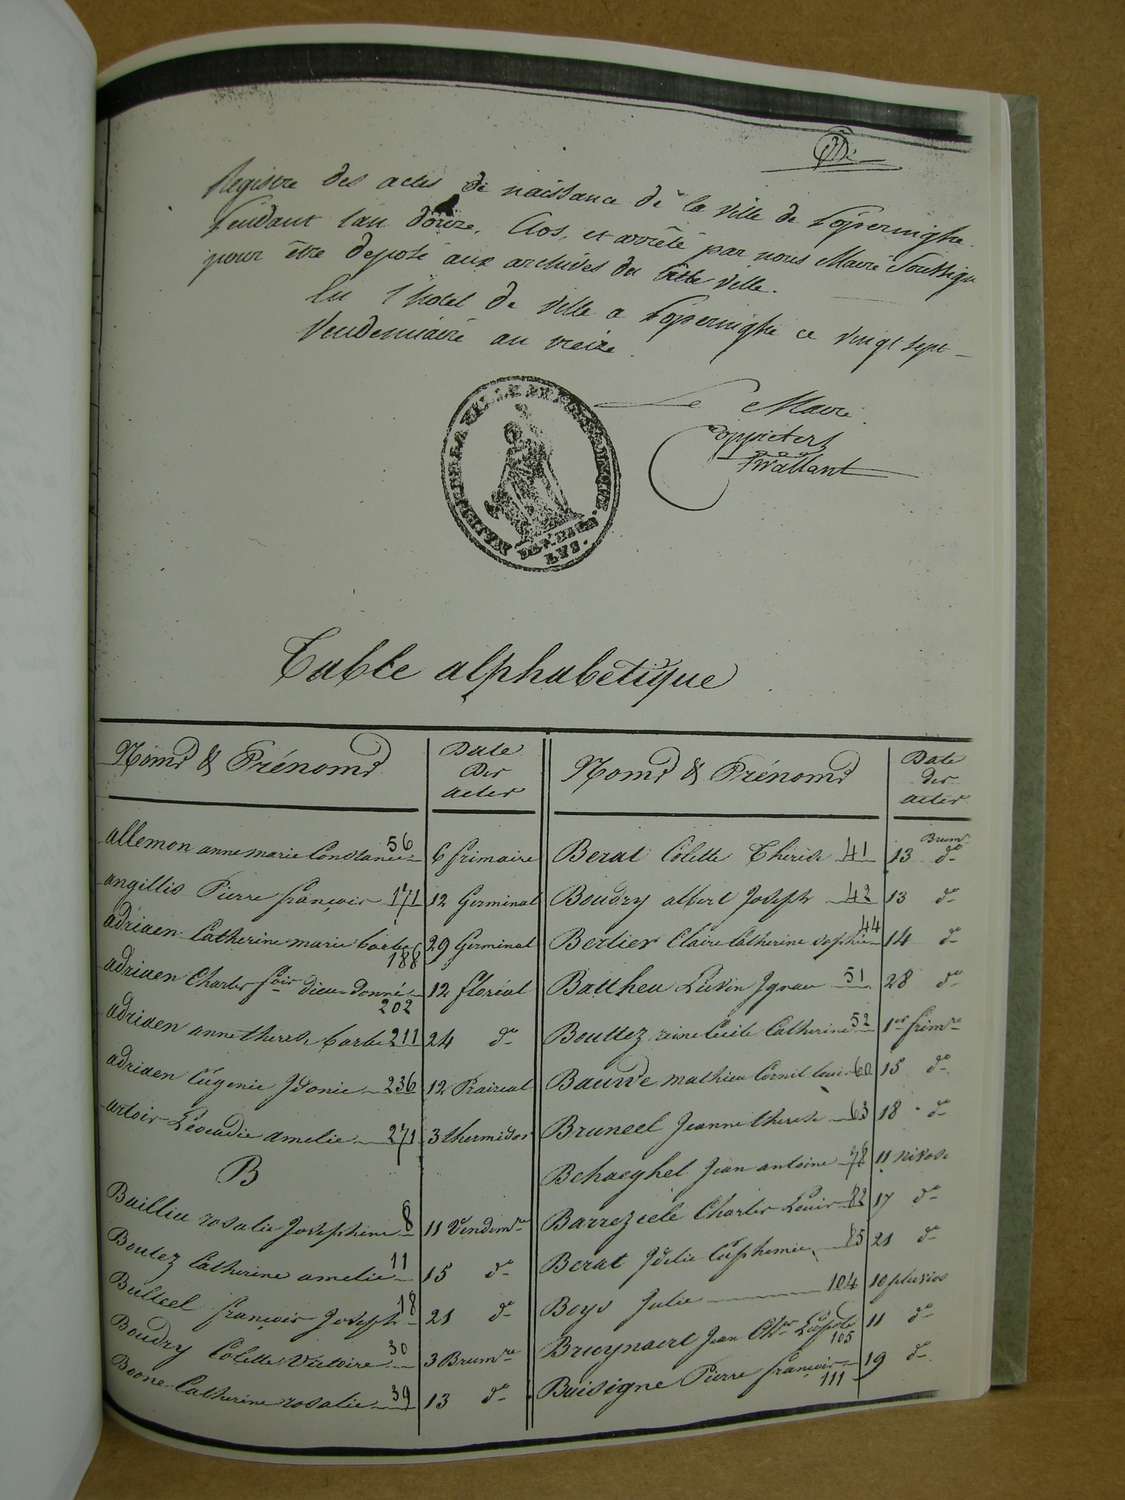 Registre des actes de naissance de la ville de Poperinghe
Pendant l'an douze, Clos, et arrêté par nous Maire
pour être deposé aux archives du ville.
En l'hotel de ville a Poperinghe ce vingt sept
Vendemiaire an treize.
Le Maire
LA VILLE DE POPERINGHE
LYS.
Table alphabetique
Noms & Prénoms
Date
Des
actes
Noms & Prénoms
Date
des
actes
allemon anne marie Constance 56 6 frimaire
angillis Pierre françois 171 12 Germinal
adriaen Catherine marie Barbe 188 29 Germinal
adriaen Charles fois dieu-donné 202 12 floréal
adriaen anne therese barbe 211 24 do
adriaen Eugenie Idonie 236 12 Prairial
artois Léocadie amelie 271 3 thermidor
B
Baillieu rosalie Josephine 8 11 Vendemre
Boutez Catherine amelie 11 15 do
Bulteel françois Joseph 18 21 do
Boudry Colette Victoire 30 3 Brumre
Boone Catherine rosalie 39 13 do
Berat Colette Therese 41 13 Brumre do
Boudry albert Joseph 42 13 do
Bertier Claire Catherine sophie 44 14 do
Battheu Livin Ignace 51 28 do
Bouttez reine Cecile Catherine 52 1er frimre
mathieu Cornil 60 15 do
Bruneel Jeanne therese 63 18 do
Behaeghel Jean antoine 78 11 nivose
Barrezeele Charles Louis 82 17 do
Berat Idelie Euphemie 85 21 do
Boys Julie 104 10 pluviose
Bruynaert Jean Léopold 105 11 do
Buisigne Pierre françois 111 19 do